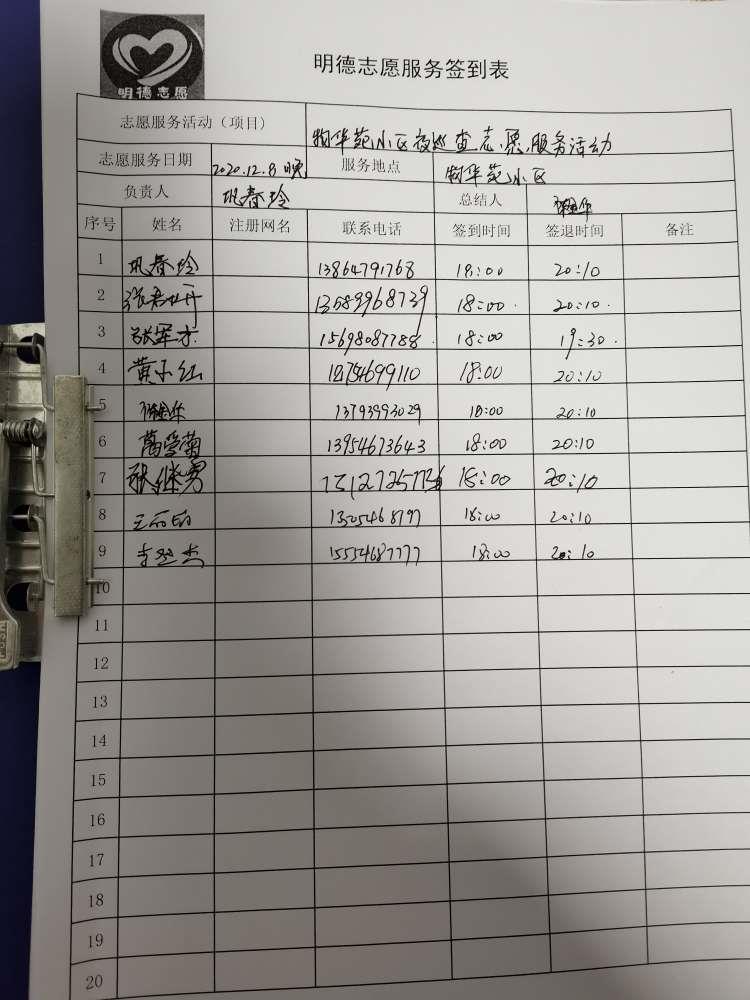 明德志愿
明德志愿服务签到表
志愿服务活动（项目） 物华苑小区夜巡查志愿服务活动
志愿服务日期 2020.12.8晚 服务地点 物华苑小区
负责人 巩春玲 总结人
序号 姓名 注册网名 联系电话 签到时间 签退时间 备注
1 巩春玲 13864791768 18:00 20:10
2 13589968739 18:00 20:10
3 张军才 15698087788 18:00 19:30
4 黄小红 18:00 20:10
5 13793993029 18:00 20:10
6 葛爱菊 13954673643 18:00 20:10
7 张继男 18:00 20:10
8 13054681797 18:00 20:10
9 15554687777 18:00 20:10
10
11
12
13
14
15
16
17
18
19
20